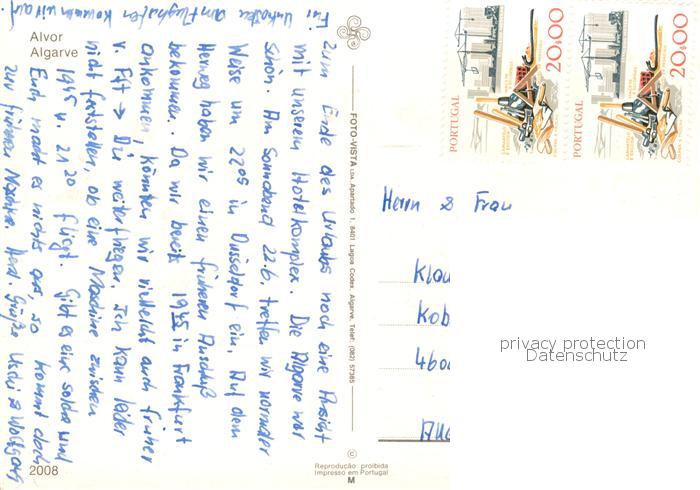 Alvor
Algarve
Zum Ende des Urlaubs noch eine Ansicht
mit unserem Hotelkomplex. Die Algarve war
schön. Am Sonnabend 22.6. treffen wir normaler
Weise um 22⁰⁵ in Düsseldorf ein. Auf dem
Herweg haben wir einen früheren Anschluß
bekommen. Da wir bereits 19⁴⁵ in Frankfurt
ankommen, könnten wir vielleicht auch früher
v. Fft → Dü weiterfliegen. Ich kann leider
nicht feststellen, ob eine Maschine zwischen
19⁴⁵ u. 21²⁰ fliegt. Gibt es eine solche und
Euch macht es nichts aus, so kommt doch
zur früheren Maschine. Herzl. Grüße Uschi & Wolfgang
Für am Flughafen kommen wir auf.
2008
FOTO-VISTA LDA. Apartado 1, 8401 Lagoa Codex, Algarve. Telef: (082) 57385
©
Reprodução proibida
Impresso em Portugal
M
PORTUGAL 20$00
PORTUGAL 20$00
Herrn & Frau
Klau
Kob
4600
privacy protection
Datenschutz